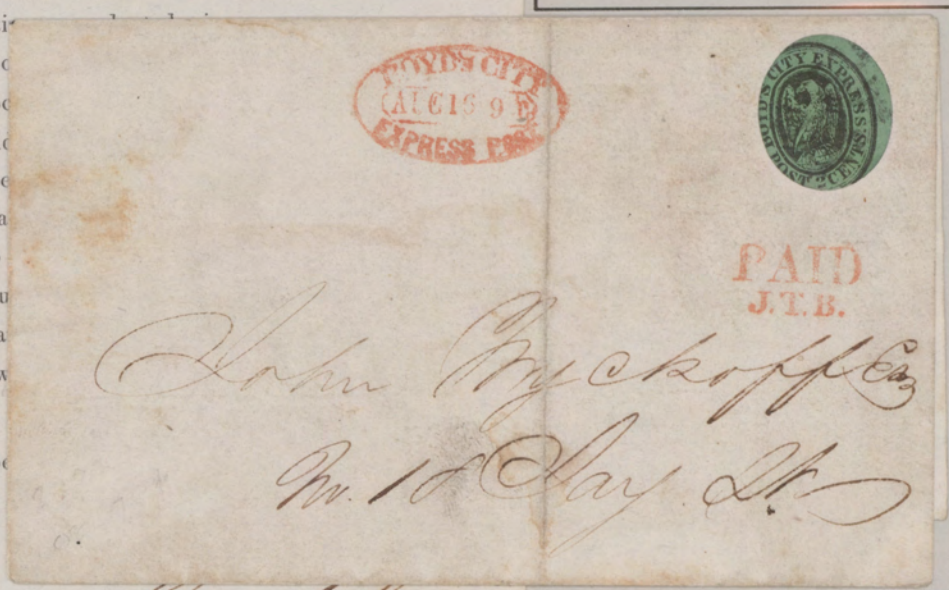 BOYD'S CITY
AUG 16 9
EXPRESS POST
BOYD'S CITY EXPRESS POST 2 CENTS
PAID
J.T.B.
John Wyckoff Esq
No. 18 Jay St.